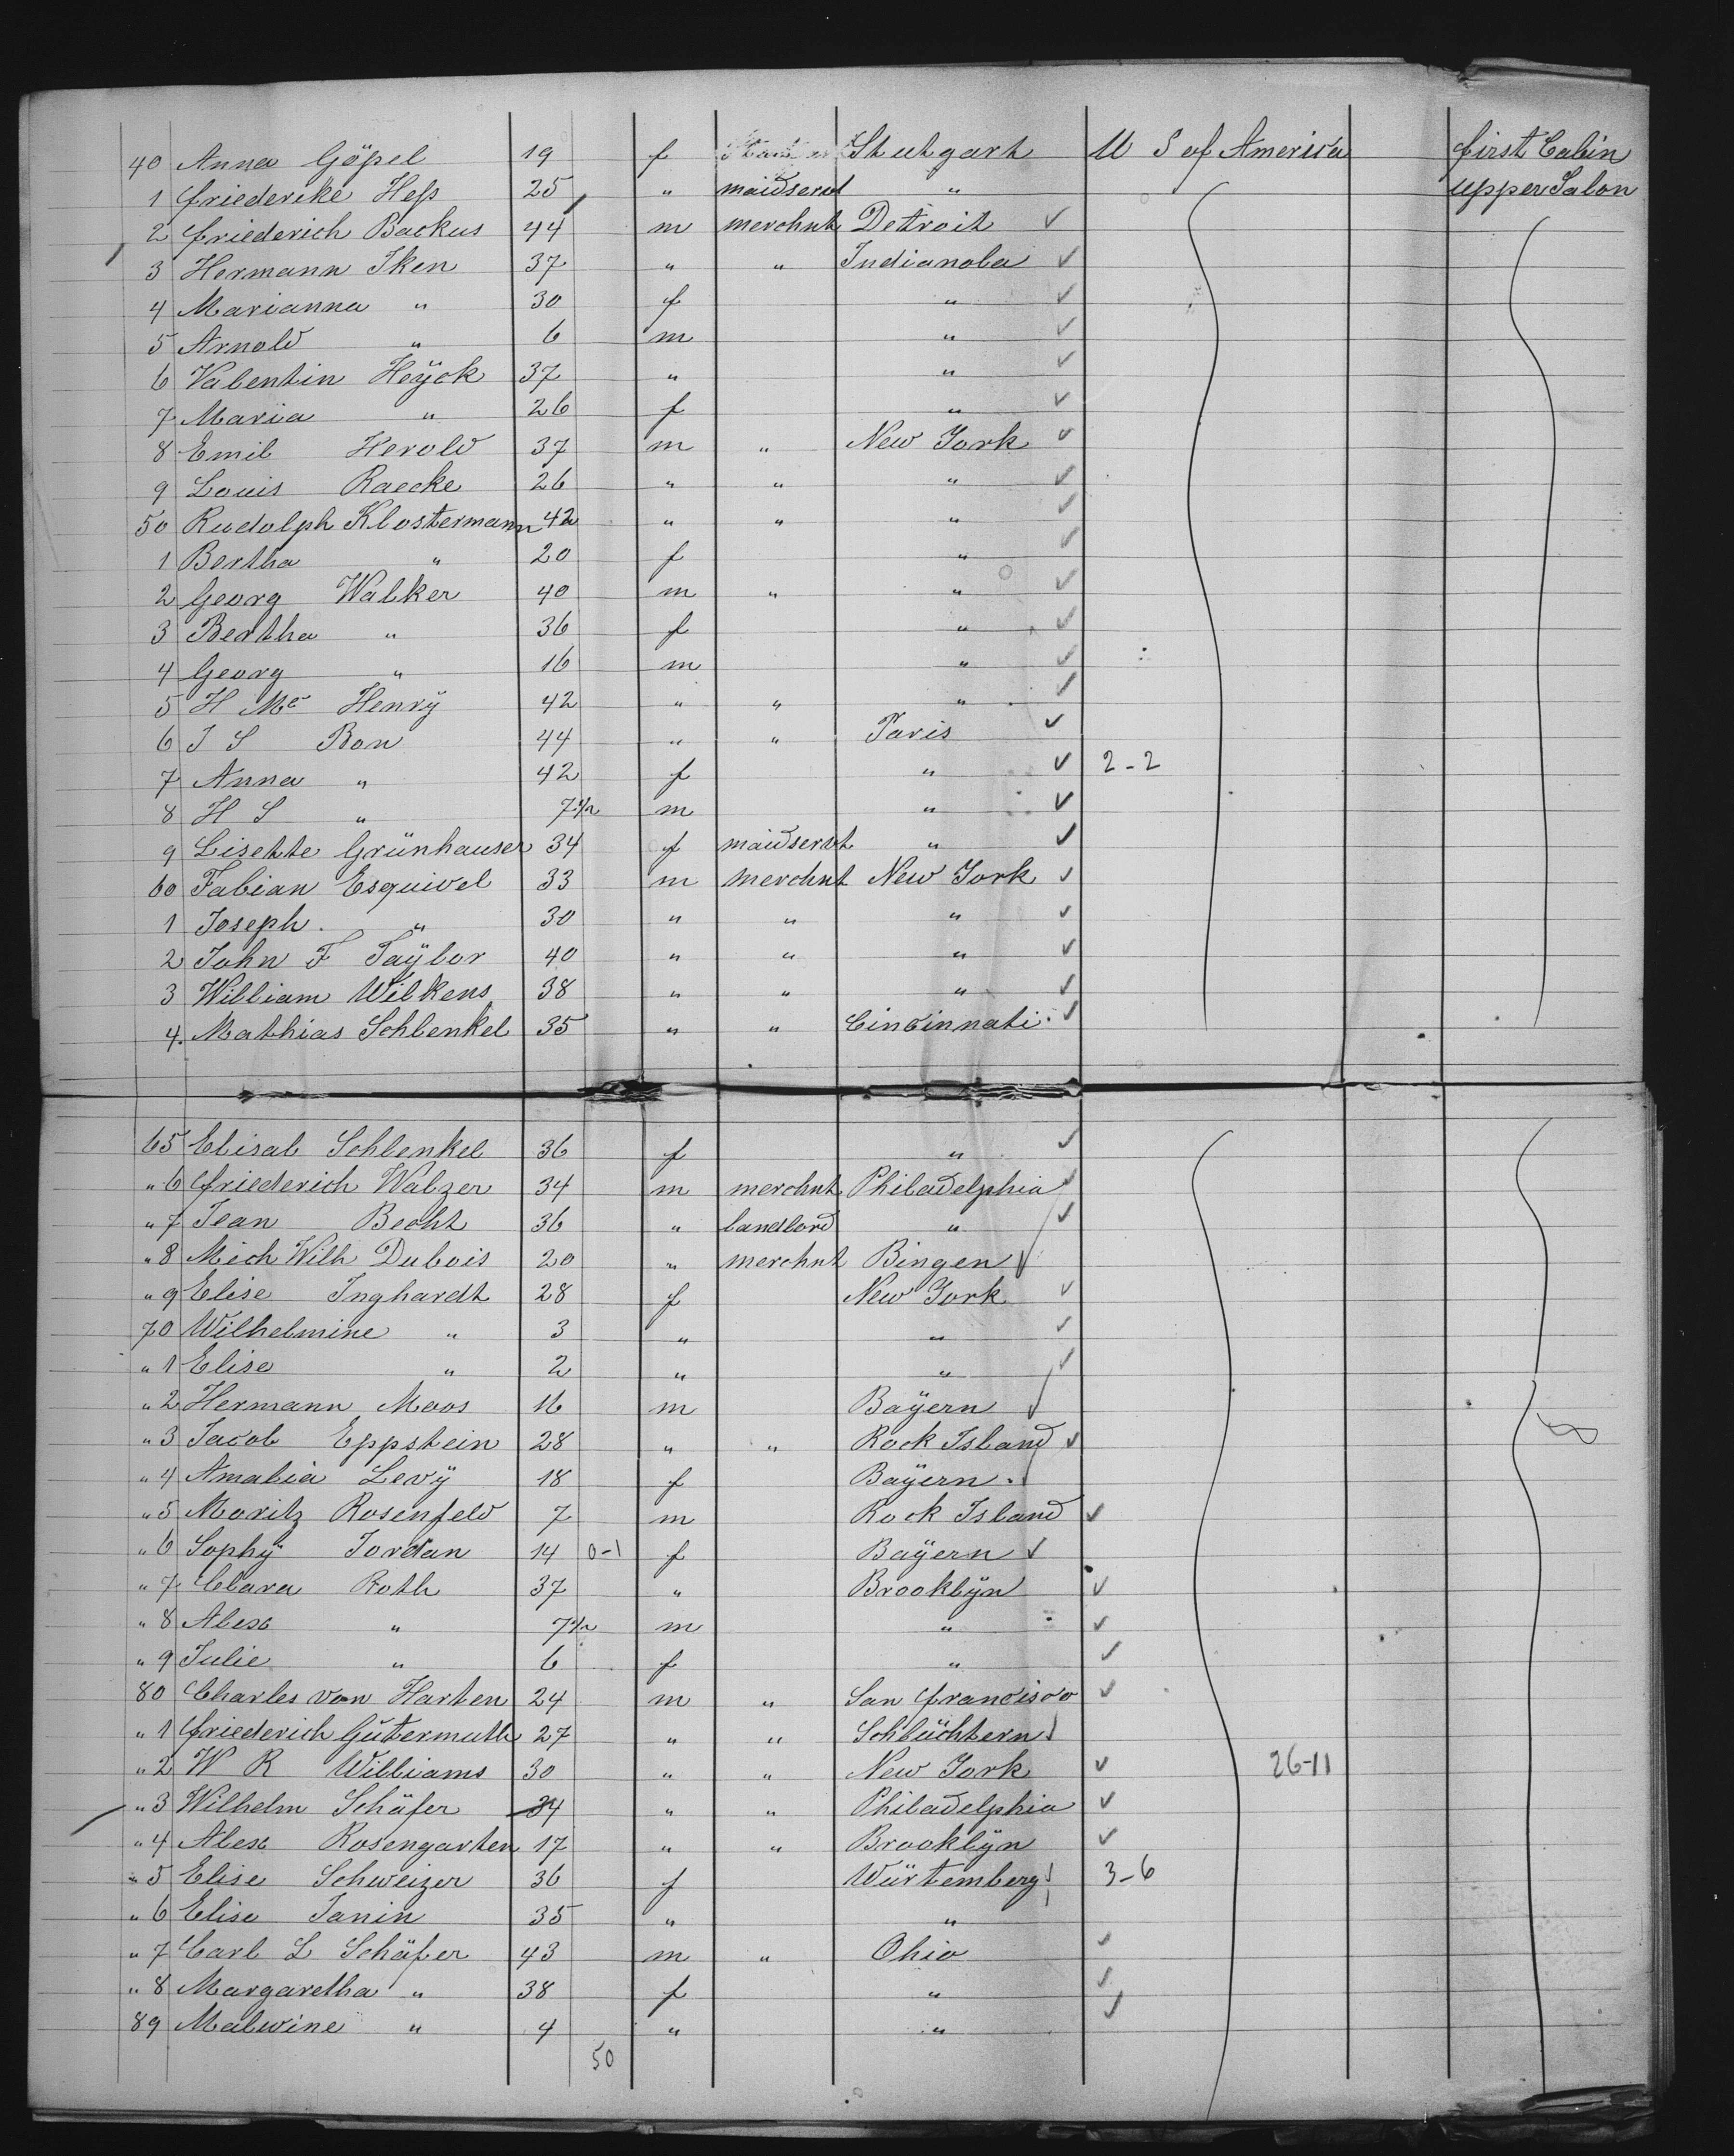 40 Anna Göpel 19 f Stutgart U S of America first Cabin
1 friederike Heſs 25 " maidservt " upper Salon
2 friederich Backus 44 m merchnt Detroit
3 Hermann Iken 37 " " Indianola
4 Marianna " 30 f "
5 Arnold " 6 m "
6 Valentin Heÿck 37 " "
7 Maria " 26 f "
8 Emil Herold 37 m " New York
9 Louis Raecke 26 " " "
50 Rudolph Klostermann 42 " " "
1 Bertha " 20 f "
2 Georg Walker 40 m " "
3 Bertha " 36 f "
4 Georg " 16 m "
5 H Mc Henrÿ 42 " " "
6 J S Ron 44 " " Paris
7 Anna " 42 f " 2-2
8 H S " 7 1/2 m "
9 Lisette Grünhauser 34 f maidservt "
60 Fabian Esquivel 33 m merchnt New York
1 Joseph " 30 " " "
2 John F Taÿlor 40 " " "
3 William Wilkens 38 " " "
4. Mathias Schlenkel 35 " " Cincinnati
65 Elisab Schlenkel 36 f "
"6 friederich Walzer 34 m merchnt Philadelphia
"7 Jean Becht 36 " landlord "
"8 Mich Wilh Dubois 20 " merchnt Bingen
"9 Elise Inghardt 28 f New York
70 Wilhelmine " 3 " "
"1 Elise " 2 " "
"2 Hermann Moos 16 m Baÿern
"3 Jacob Eppstein 28 " " Rock Island
"4 Amalia Levÿ 18 f Baÿern
"5 Moritz Rosenfeld 7 m Rock Island
"6 Sophÿ Jordan 14 0-1 f Baÿern
"7 Clara Roth 37 " Brooklÿn
"8 Alex " 7 1/2 m "
"9 Julie " 6 f "
80 Charles von Harten 24 m " San francisco
"1 friederich Gutermuth 27 " " Schlüchtern
"2 W R Williams 30 " " New York 26-11
"3 Wilhelm Schäfer 34 " " Philadelphia
"4 Alex Rosengarten 17 " " Brooklÿn
"5 Elise Schweizer 36 f Würtemberg 3-6
"6 Elise Janin 35 " "
"7 Carl L Schäfer 43 m " Ohio
"8 Margaretha " 38 f "
89 Malwine " 4 " "
50